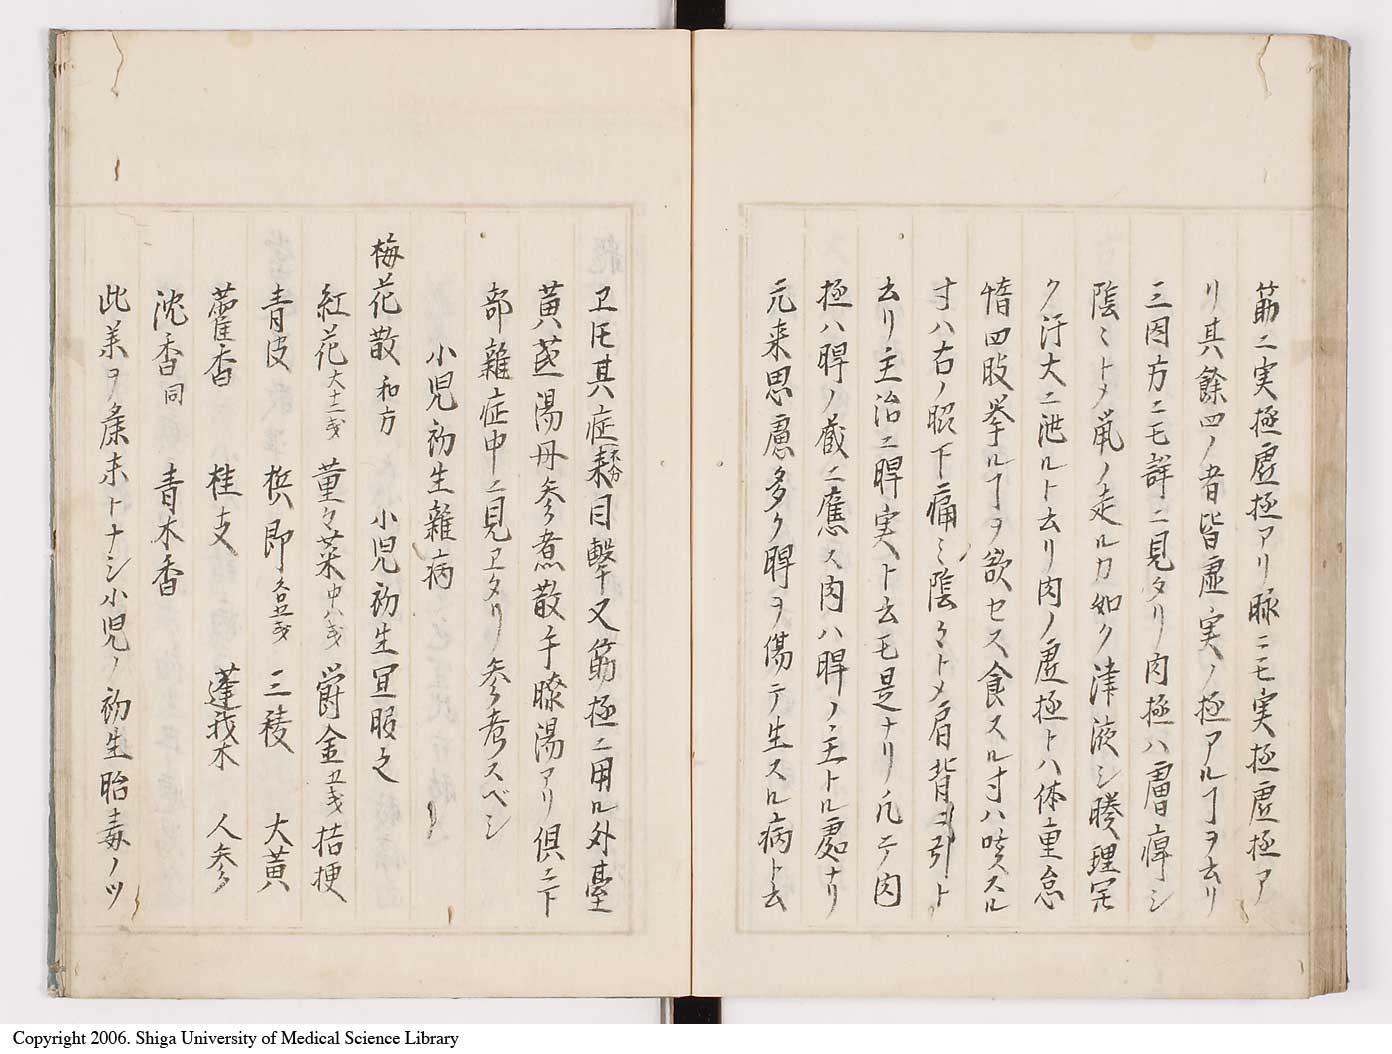 筋ニ実極虚極アリ脉ニモ実極虚極ア
リ其餘四ノ者皆虚実ノ極アルヿヲ云リ
三因方ニモ詳ニ見タリ肉極ハ膚痺シ
陰ミトメ鼠ノ走ルカ如ク津液シ腠理
ク汗大ニ泄ルト云リ肉ノ虚極トハ体重怠
惰四肢挙ルヿヲ欲セス食スル寸ハ咳スル
寸ハ右ノ脇下痛ミ陰々トメ肩背ヱ引ト
云リ主治ニ脾実ト云モ是ナリ凡テ肉
極ハ脾ノ蔵ニ應ス肉ハ脾ノ主トル處ナリ
元来思慮多ク脾ヲ傷テ生スル病ト云
ヱ𪜈其症未分目撃又筋極ニ用ル外臺
黄芪湯丹参煮散千膠湯アリ倶ニ下
部雜症中ニ見ヱタリ参考スベシ
小児初生雜病
梅花散 和方 小児初生冝服之
紅花 大十二戔 菫々菜 中八戔 欝金 五戔 桔梗
青皮 梹即 各五戔 三稜 大黄
藿香 桂支 蓬莪朮 人参
沈香 同 青木香
此薬ヲ末トナシ小児ノ初生胎毒ノツ
Copyright 2006. Shiga University of Medical Science Library